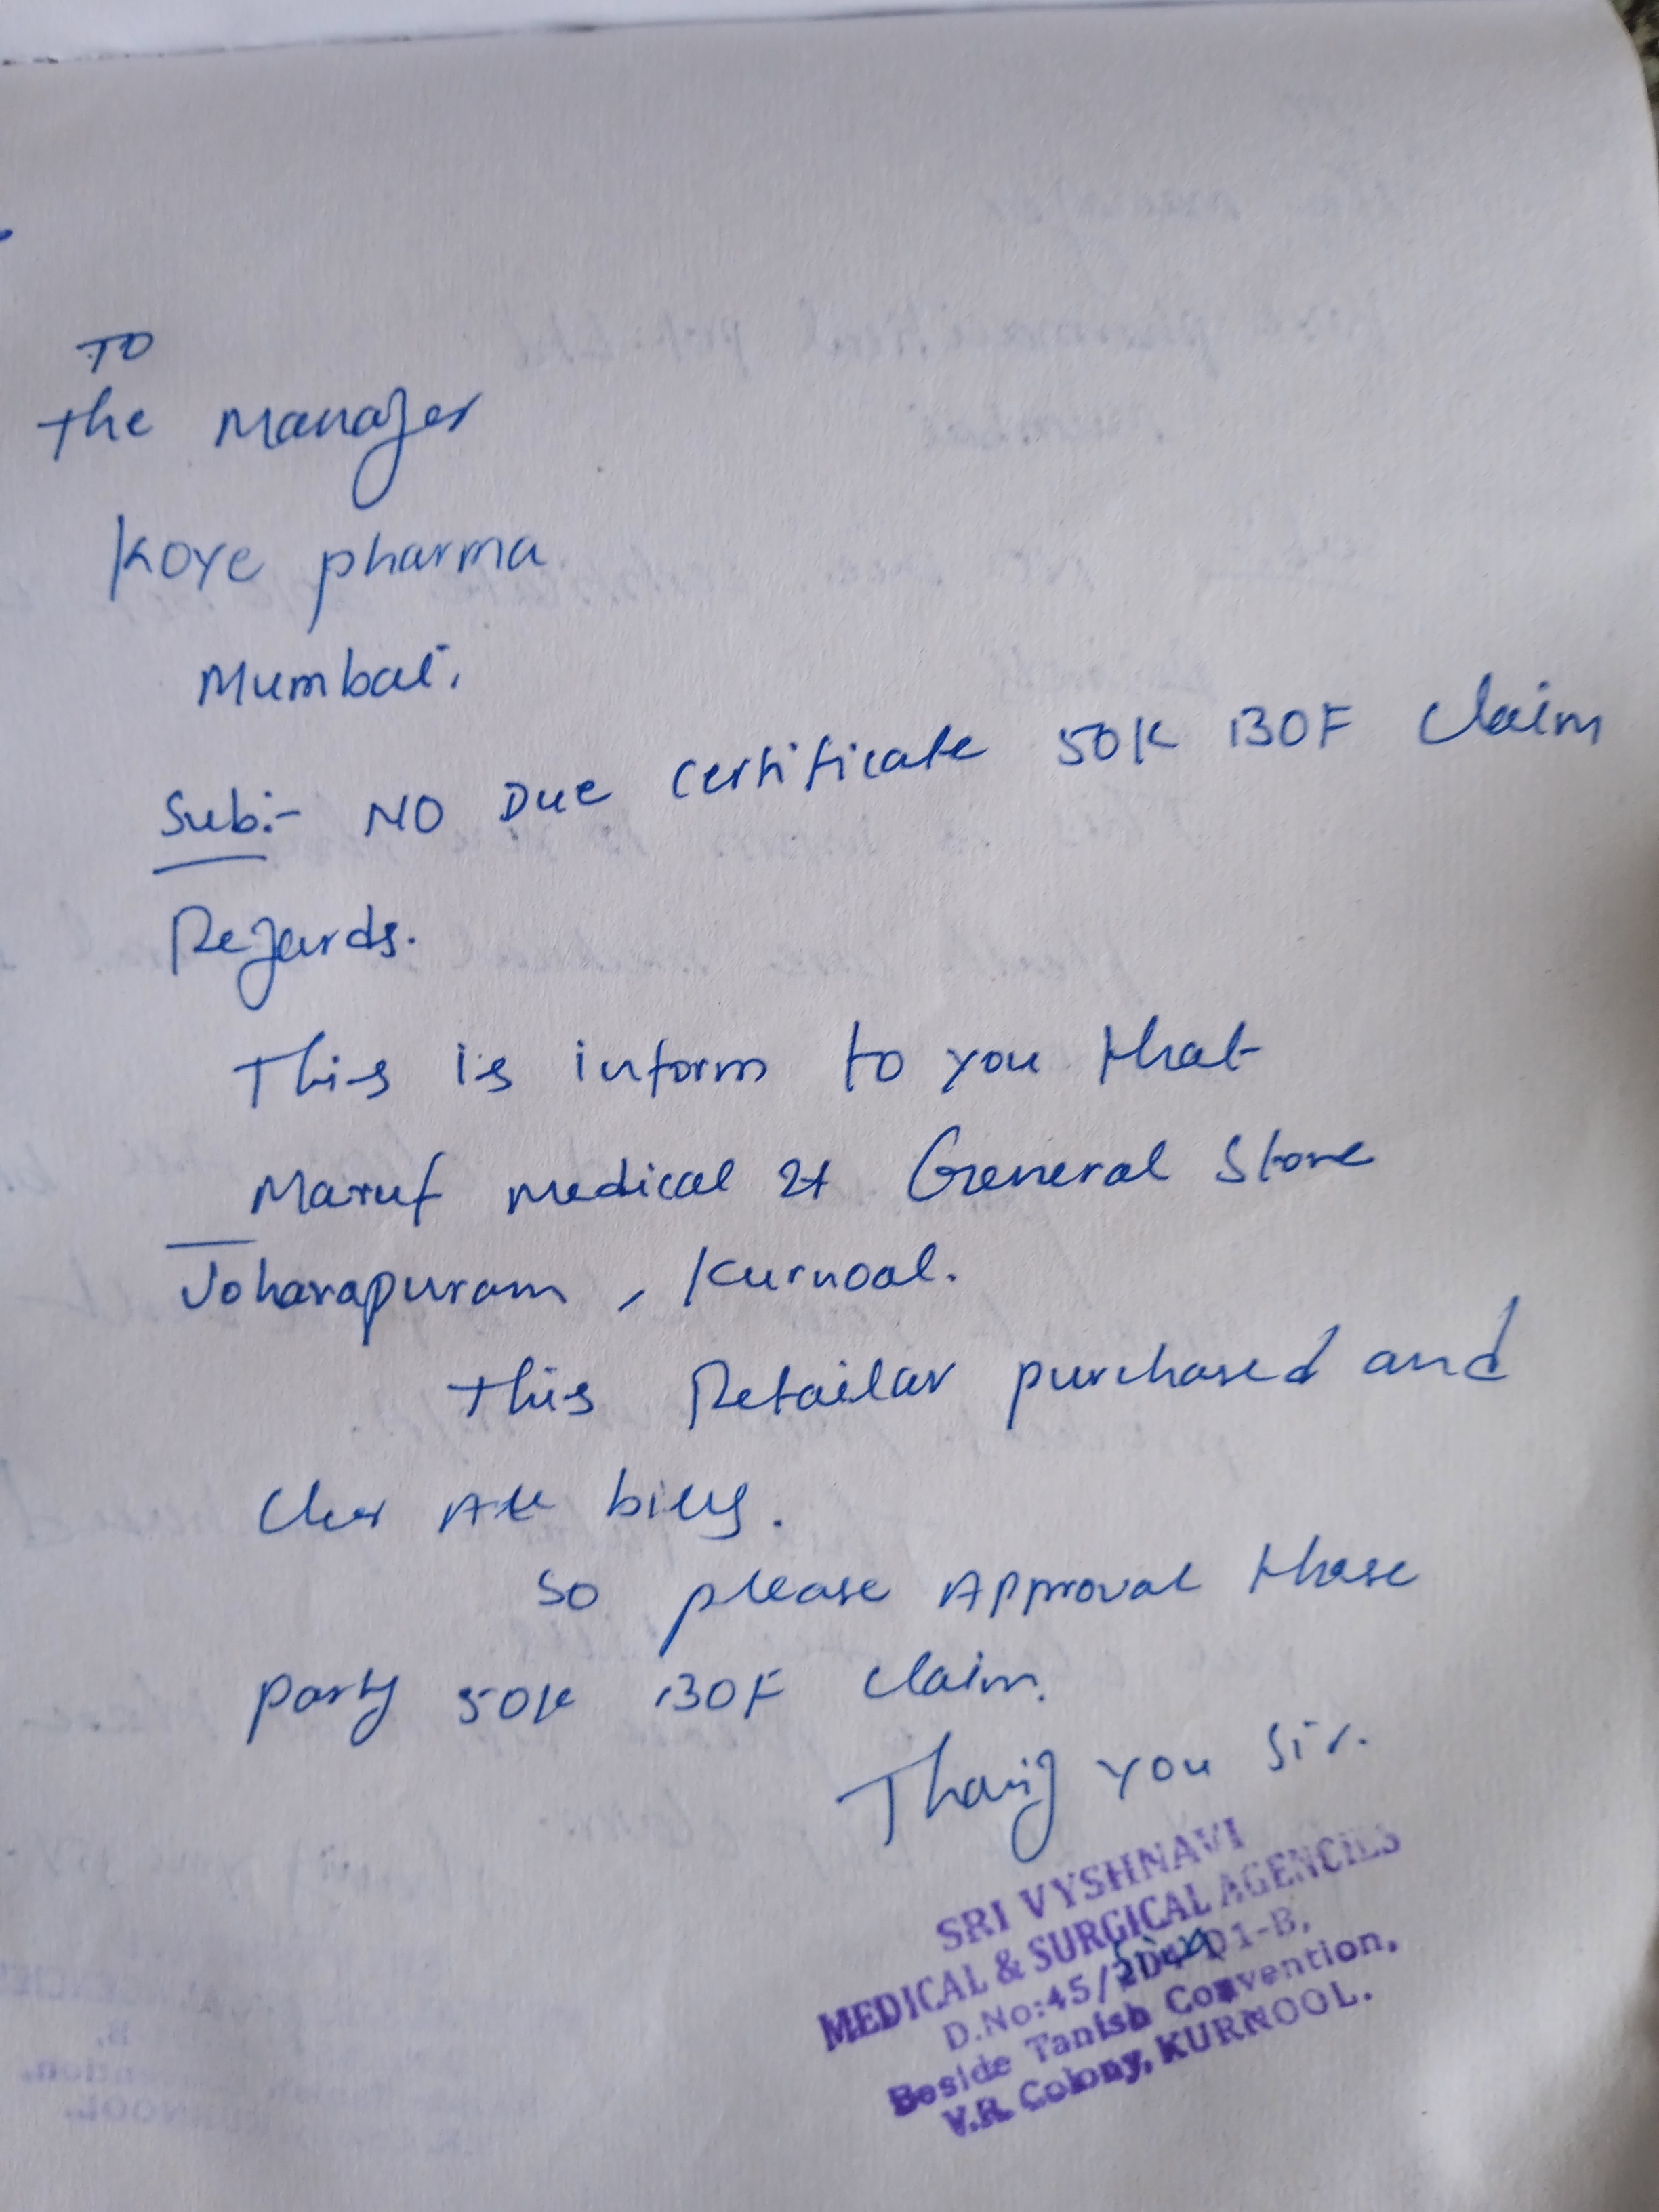 TO
The Manager
Koye pharma
Mumbai.
Sub:- NO Due certificate 50K BOF claim
Regards.
This is inform to you that
Maruf medical & General Store
Joharapuram, Kurnool.
This Retailar purchased and
Clear All bills.
So please Approval these
party 50K BOF claim.
Thank you sir.
SRI VYSHNAVI
MEDICAL & SURGICAL AGENCIES
D.No:45/
Beside Tanish Convention,
V.R. Colony, KURNOOL.